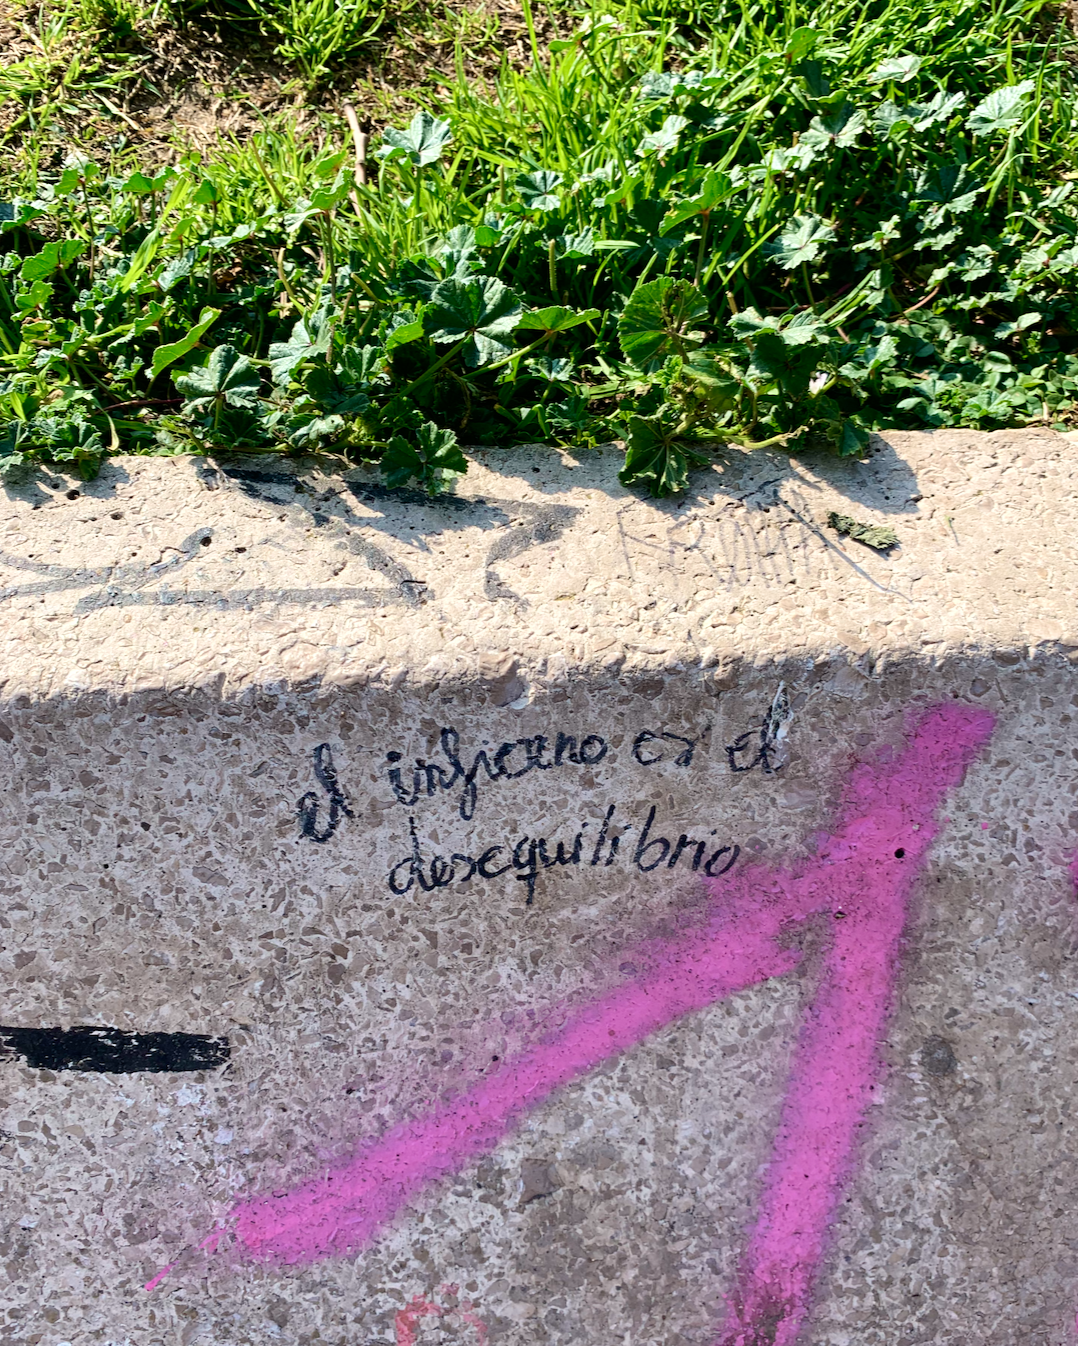 el infierno es el
desequilibrio